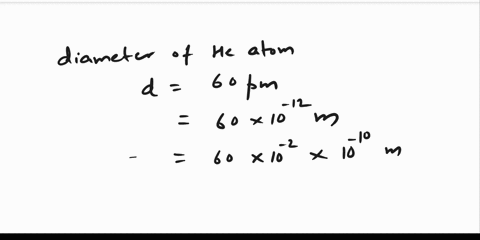 diameter of He atom
d = 60 pm
= 60 × 10⁻¹² m
- = 60 × 10⁻² × 10⁻¹⁰ m